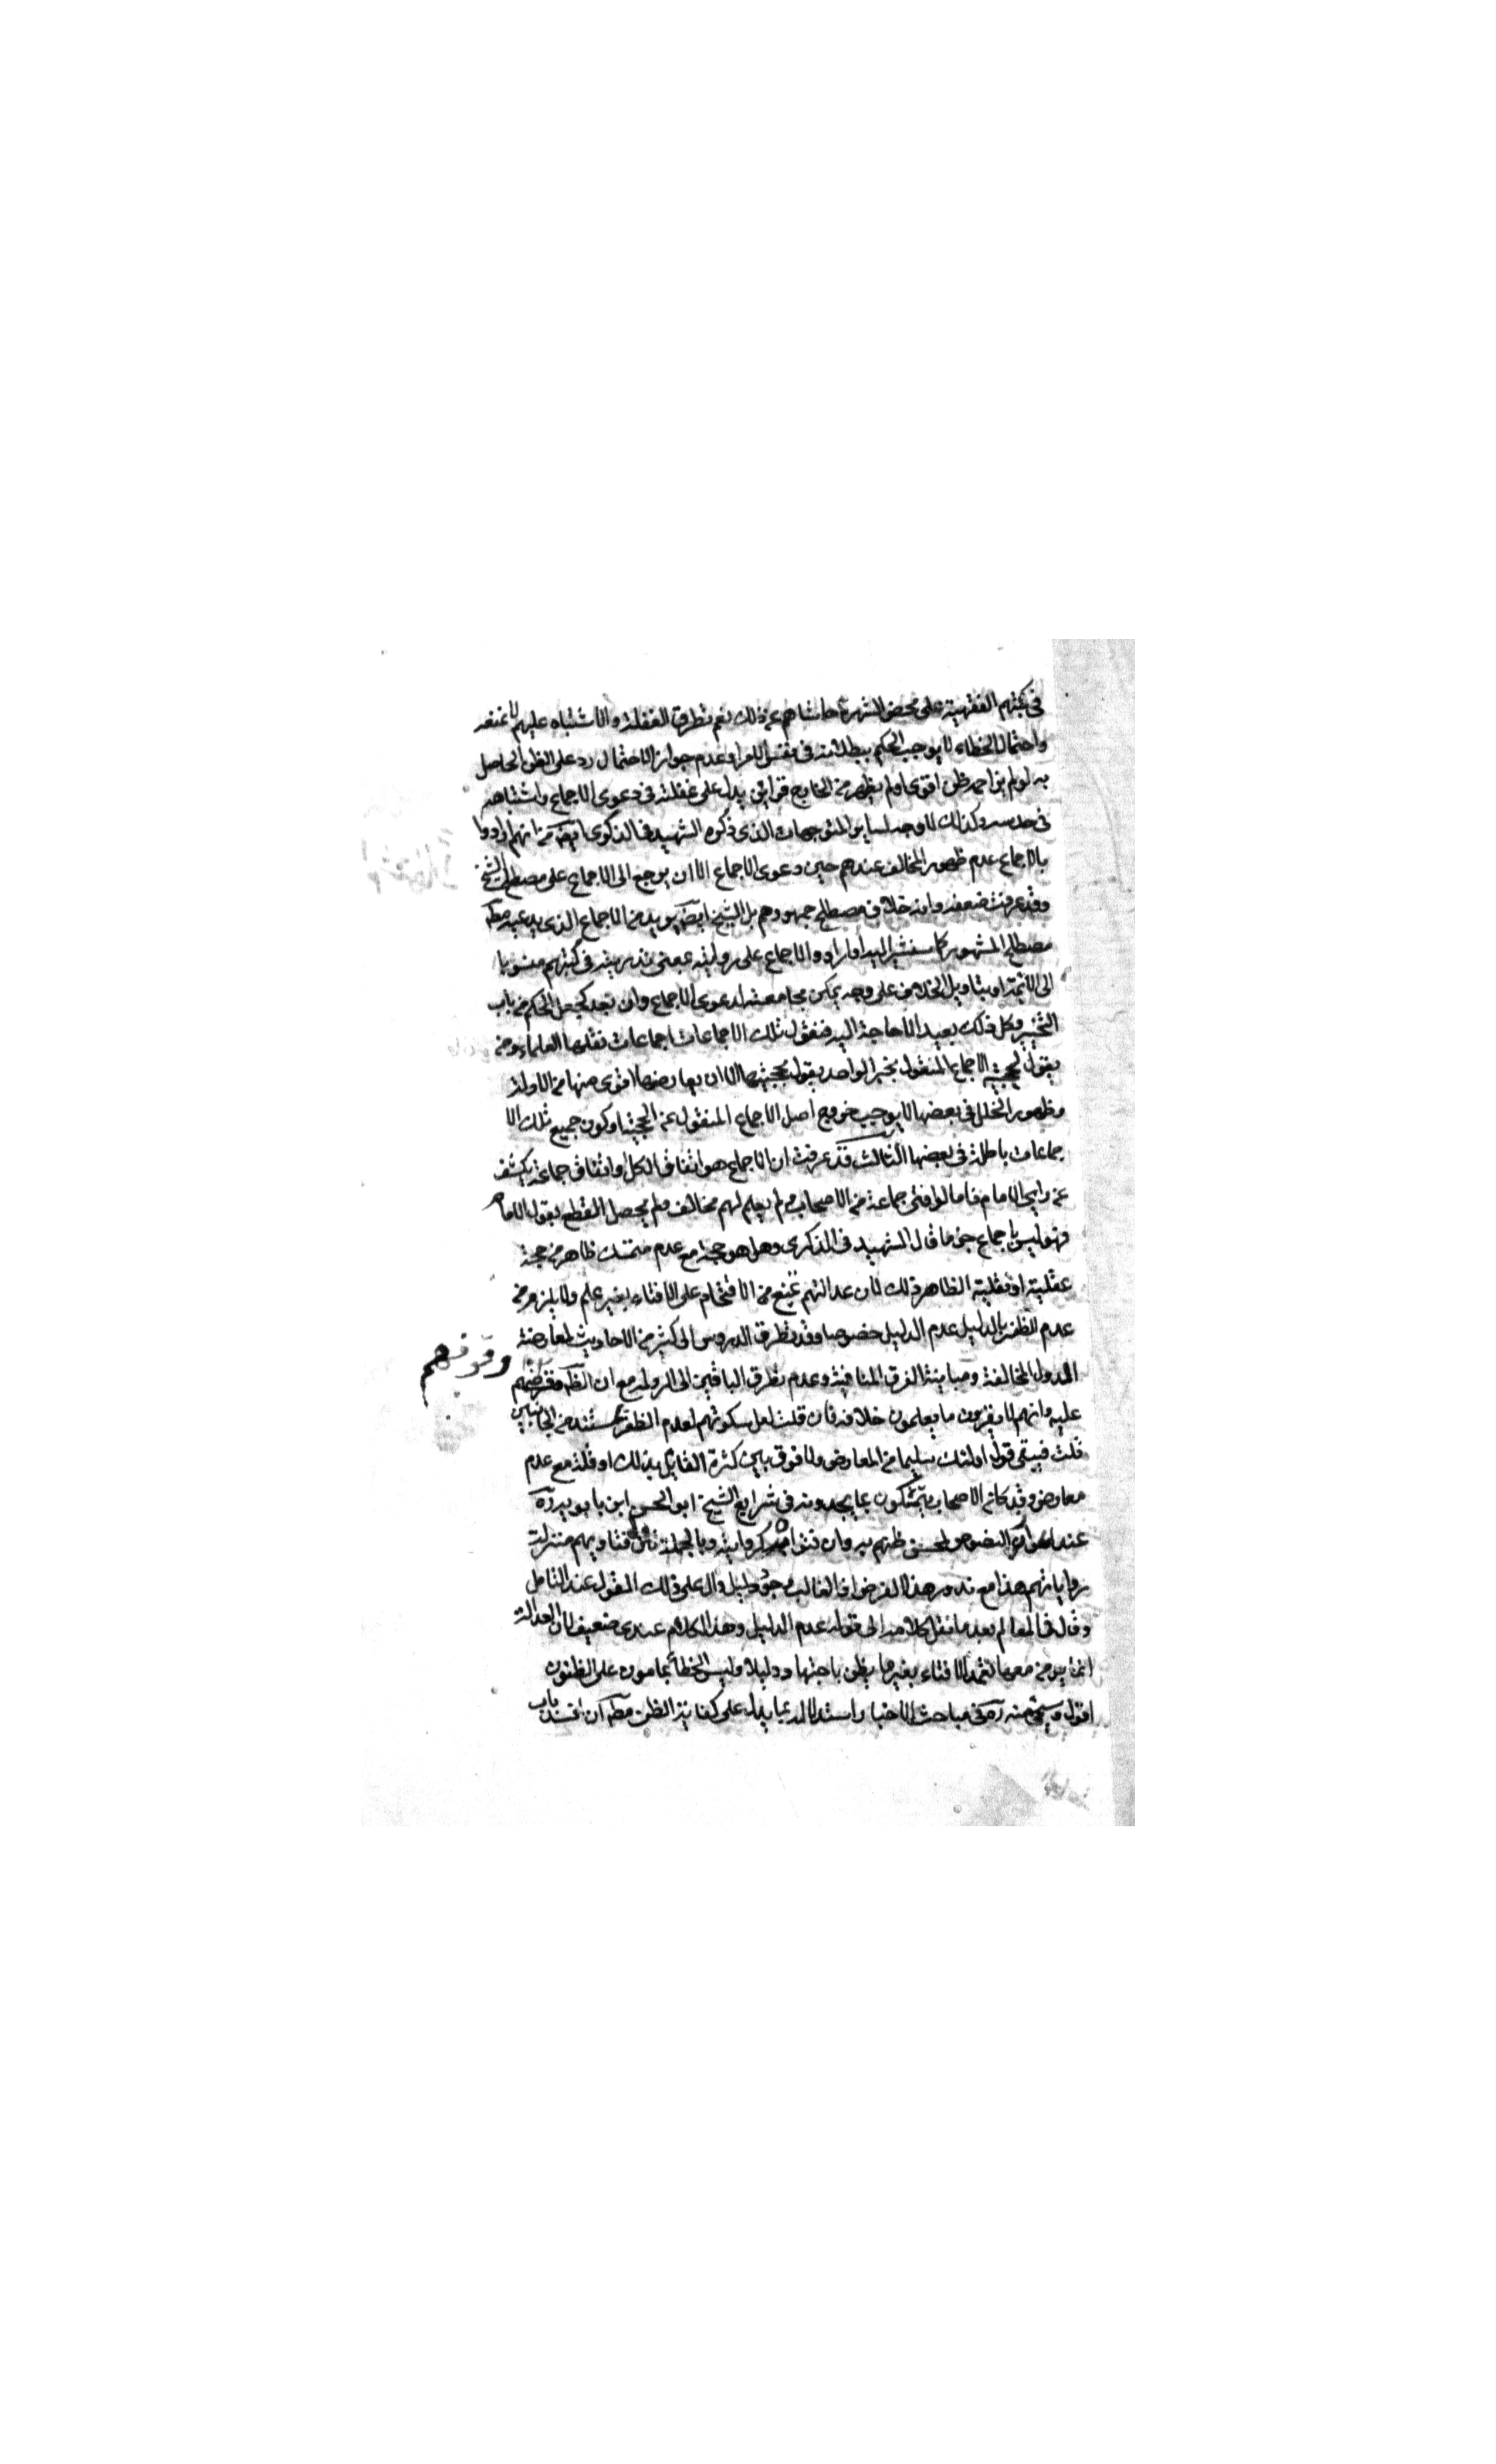 في كتبهم الفقهية على محض الشهرة حاشاهم عن ذلك نعم تطرق الغفلة والاشتباه عليهم لا نمنعه
واحتمال الخطاء لا يوجب الحكم ببطلانه في نفس الامر وعدم جواز الاحتمال رد على الظن الحاصل
به لو لم يزاحمه ظن اقوى ولم يظهر من الخارج قراين يدل على غفلته في دعوى الاجماع واشتباهه
في حدسه وكذلك لا وجه لساير التوجيهات الذي ذكره الشهيد في الذكرى ايضا من انهم ارادوا
بالاجماع عدم ظهور المخالف عندهم حين دعوى الاجماع الا ان يرجع الى الاجماع على مصطلح الشيخ
وقد عرفت ضعفه وانه خلاف مصطلح جمهورهم بل الشيخ ايضا يريد من الاجماع الذي يدعيه مط
مصطلح المشهور كما سنشير اليه او ارادوا الاجماع على روايته بمعنى تدوينه في كتبهم منسوبا
الى الائمة او بتاويل الخلاف على وجه يمكن مجامعته لدعوى الاجماع وان بعد كجعل الحكم من باب
التخيير وكل ذلك بعيد لا حاجة اليه فنقول تلك الاجماعات اجماعات نقلها العلماء ومن
يقول بحجية الاجماع المنقول بخبر الواحد يقول بحجيتها الا ان يعارضها اقوى منها من الادلة
وظهور الخلل في بعضها لا يوجب خروج اصل الاجماع المنقول عن الحجية او كون جميع تلك الا
جماعات باطلة في بعضها الثالث قد عرفت ان الاجماع هو اتفاق الكل او اتفاق جماعة يكشف
عن راي الامام فاما لو افتى جماعة من الاصحاب ولم يعلم لهم مخالف ولم يحصل القطع بقول الامام
فهو ليس باجماع جزما قال الشهيد في الذكرى وهل هو حجة مع عدم متمسك ظاهر من حجة
عقلية او نقلية الظاهر ذلك لان عدالتهم تمنع من الاقتحام على الافتاء بغير علم ولا يلزم من
عدم الظفر بالدليل عدم الدليل خصوصا وقد تطرق الدروس الى كثير من الاحاديث لمعارضة
الدول المخالفة ومباينة الفرق المنافية وعدم تطرق الباقين الى الرد له مع ان الظ وقوفهم
وقوفهم
عليه وانهم لا يقرون ما يعلمون خلافه فان قلت لعل سكوتهم لعدم الظفر بمستند من الجانبين
قلت فيبقى قول اولئك سليما من المعارض ولا فرق بين كثرة القايل بذلك او قلته مع عدم
معارض وقد كان الاصحاب يتمسكون بما يجدونه في شرايع الشيخ ابو الحسن ابن بابويه ره
عند اعواز النصوص لحسن ظنهم به وان فتواه كروايته وبالجملة تنزل فتاويهم منزلة
رواياتهم هذا مع ندور هذا الفرض اذ الغالب وجود دليل دال على ذلك القول عند التامل
وقال في المعالم بعد ما نقل كلامه الى قوله عدم الدليل وهذا الكلام عندي ضعيف لان العدالة
انما يؤمن معها تعمد الافتاء بغير ما يظن باجتهاد دليلا وليس الخطأ بمامون على الظنون
اقول وسيجئ منه ره في مباحث الاخبار استدلاله بما يدل على كفاية الظن مط ان انسد باب